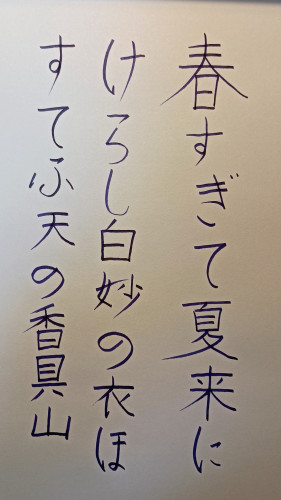 春すぎて夏来に
けらし白妙の衣ほ
すてふ天の香具山